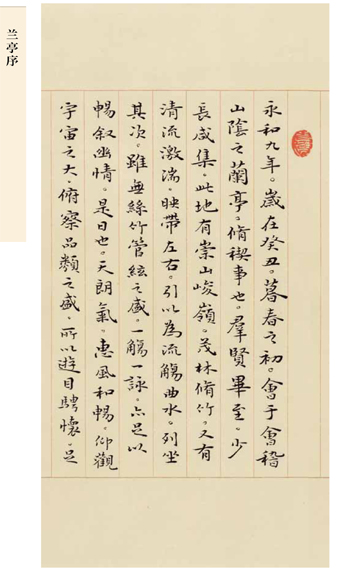 兰亭序
永和九年。歲在癸丑。暮春之初。會于會稽
山陰之蘭亭。脩禊事也。羣賢畢至。少
長咸集。此地有崇山峻嶺。茂林脩竹。又有
清流激湍。映帶左右。引以為流觴曲水。列坐
其次。雖無絲竹管絃之盛。一觴一詠。亦足以
暢叙幽情。是日也。天朗氣。惠風和暢。仰觀
宇宙之大。俯察品類之盛。所以遊目騁懷。足